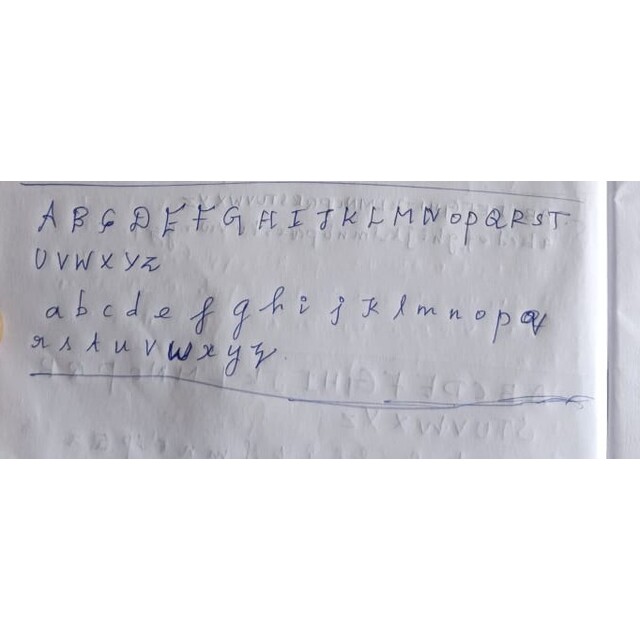 A B C D E F G H I J K L M N O P Q R S T
U V W X Y Z
a b c d e f g h i j k l m n o p q
r s t u v w x y z